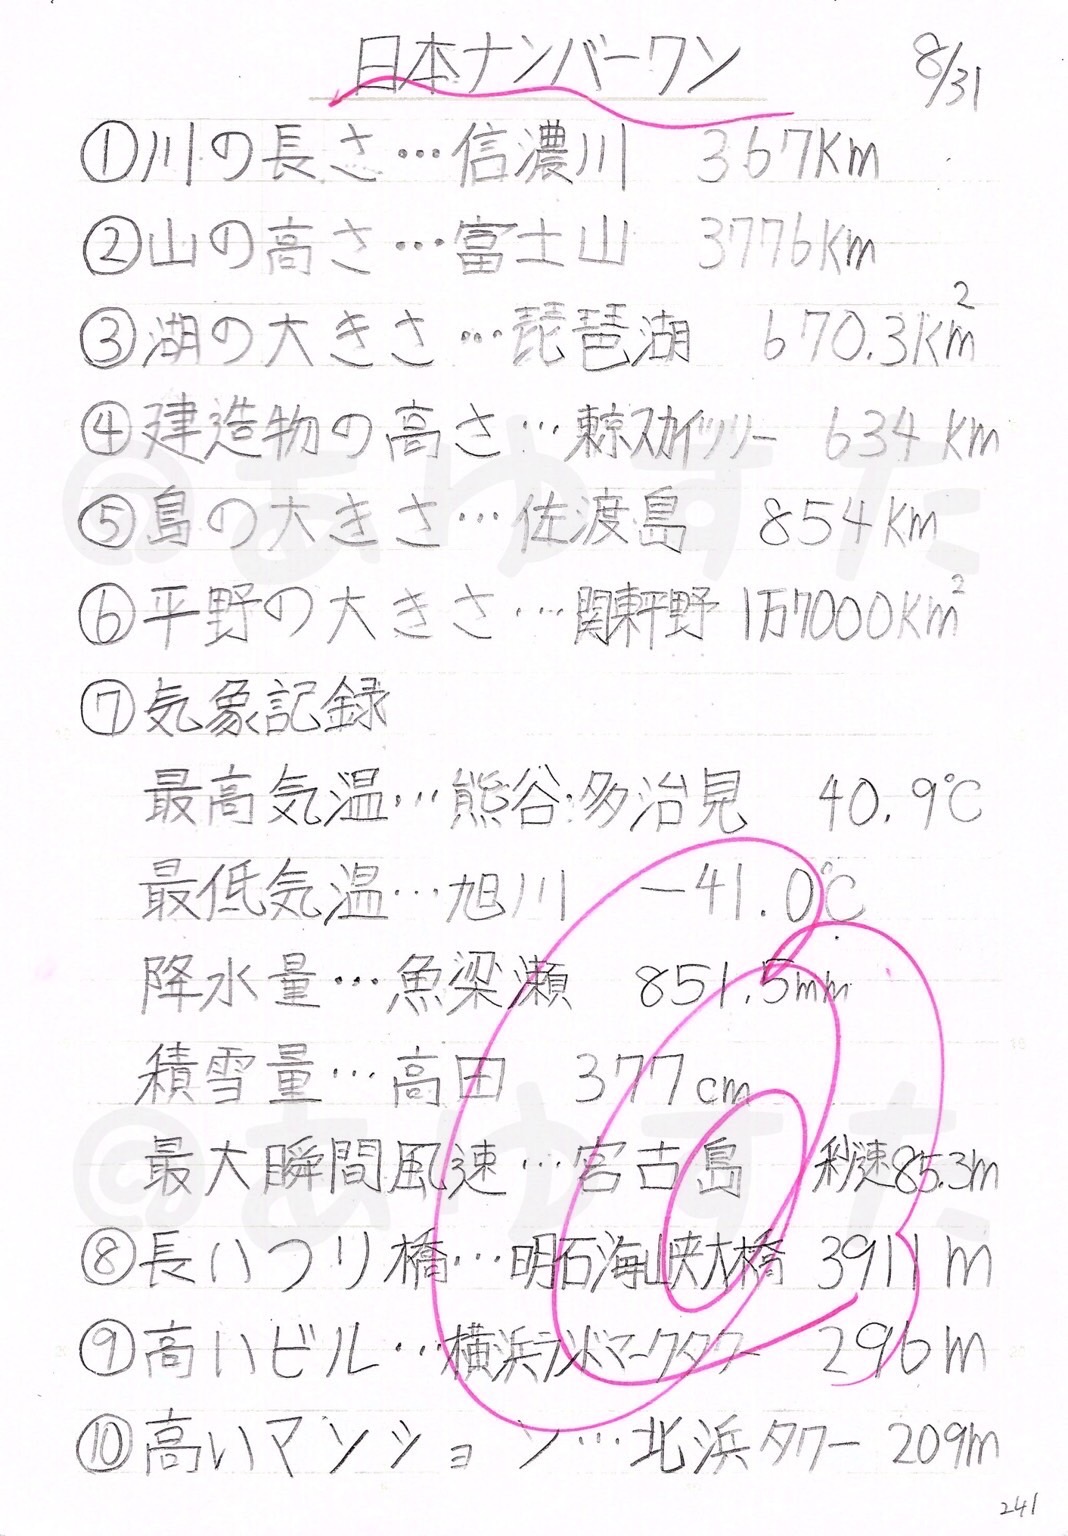 日本ナンバーワン 8/31
①川の長さ…信濃川 367Km
②山の高さ…富士山 3776Km
③湖の大きさ…琵琶湖 670.3Km²
④建造物の高さ…東京スカイツリー 634Km
⑤島の大きさ…佐渡島 854Km
⑥平野の大きさ…関東平野 1万7000Km²
⑦気象記録
最高気温…熊谷・多治見 40.9℃
最低気温…旭川 －41.0℃
降水量…魚梁瀬 851.5mm
積雪量…高田 377cm
最大瞬間風速…宮古島 秒速85.3m
⑧長いつり橋…明石海峡大橋 3911m
⑨高いビル…横浜ランドマークタワー 296m
⑩高いマンション…北浜タワー 209m
241
@あゆすた
@あゆすた